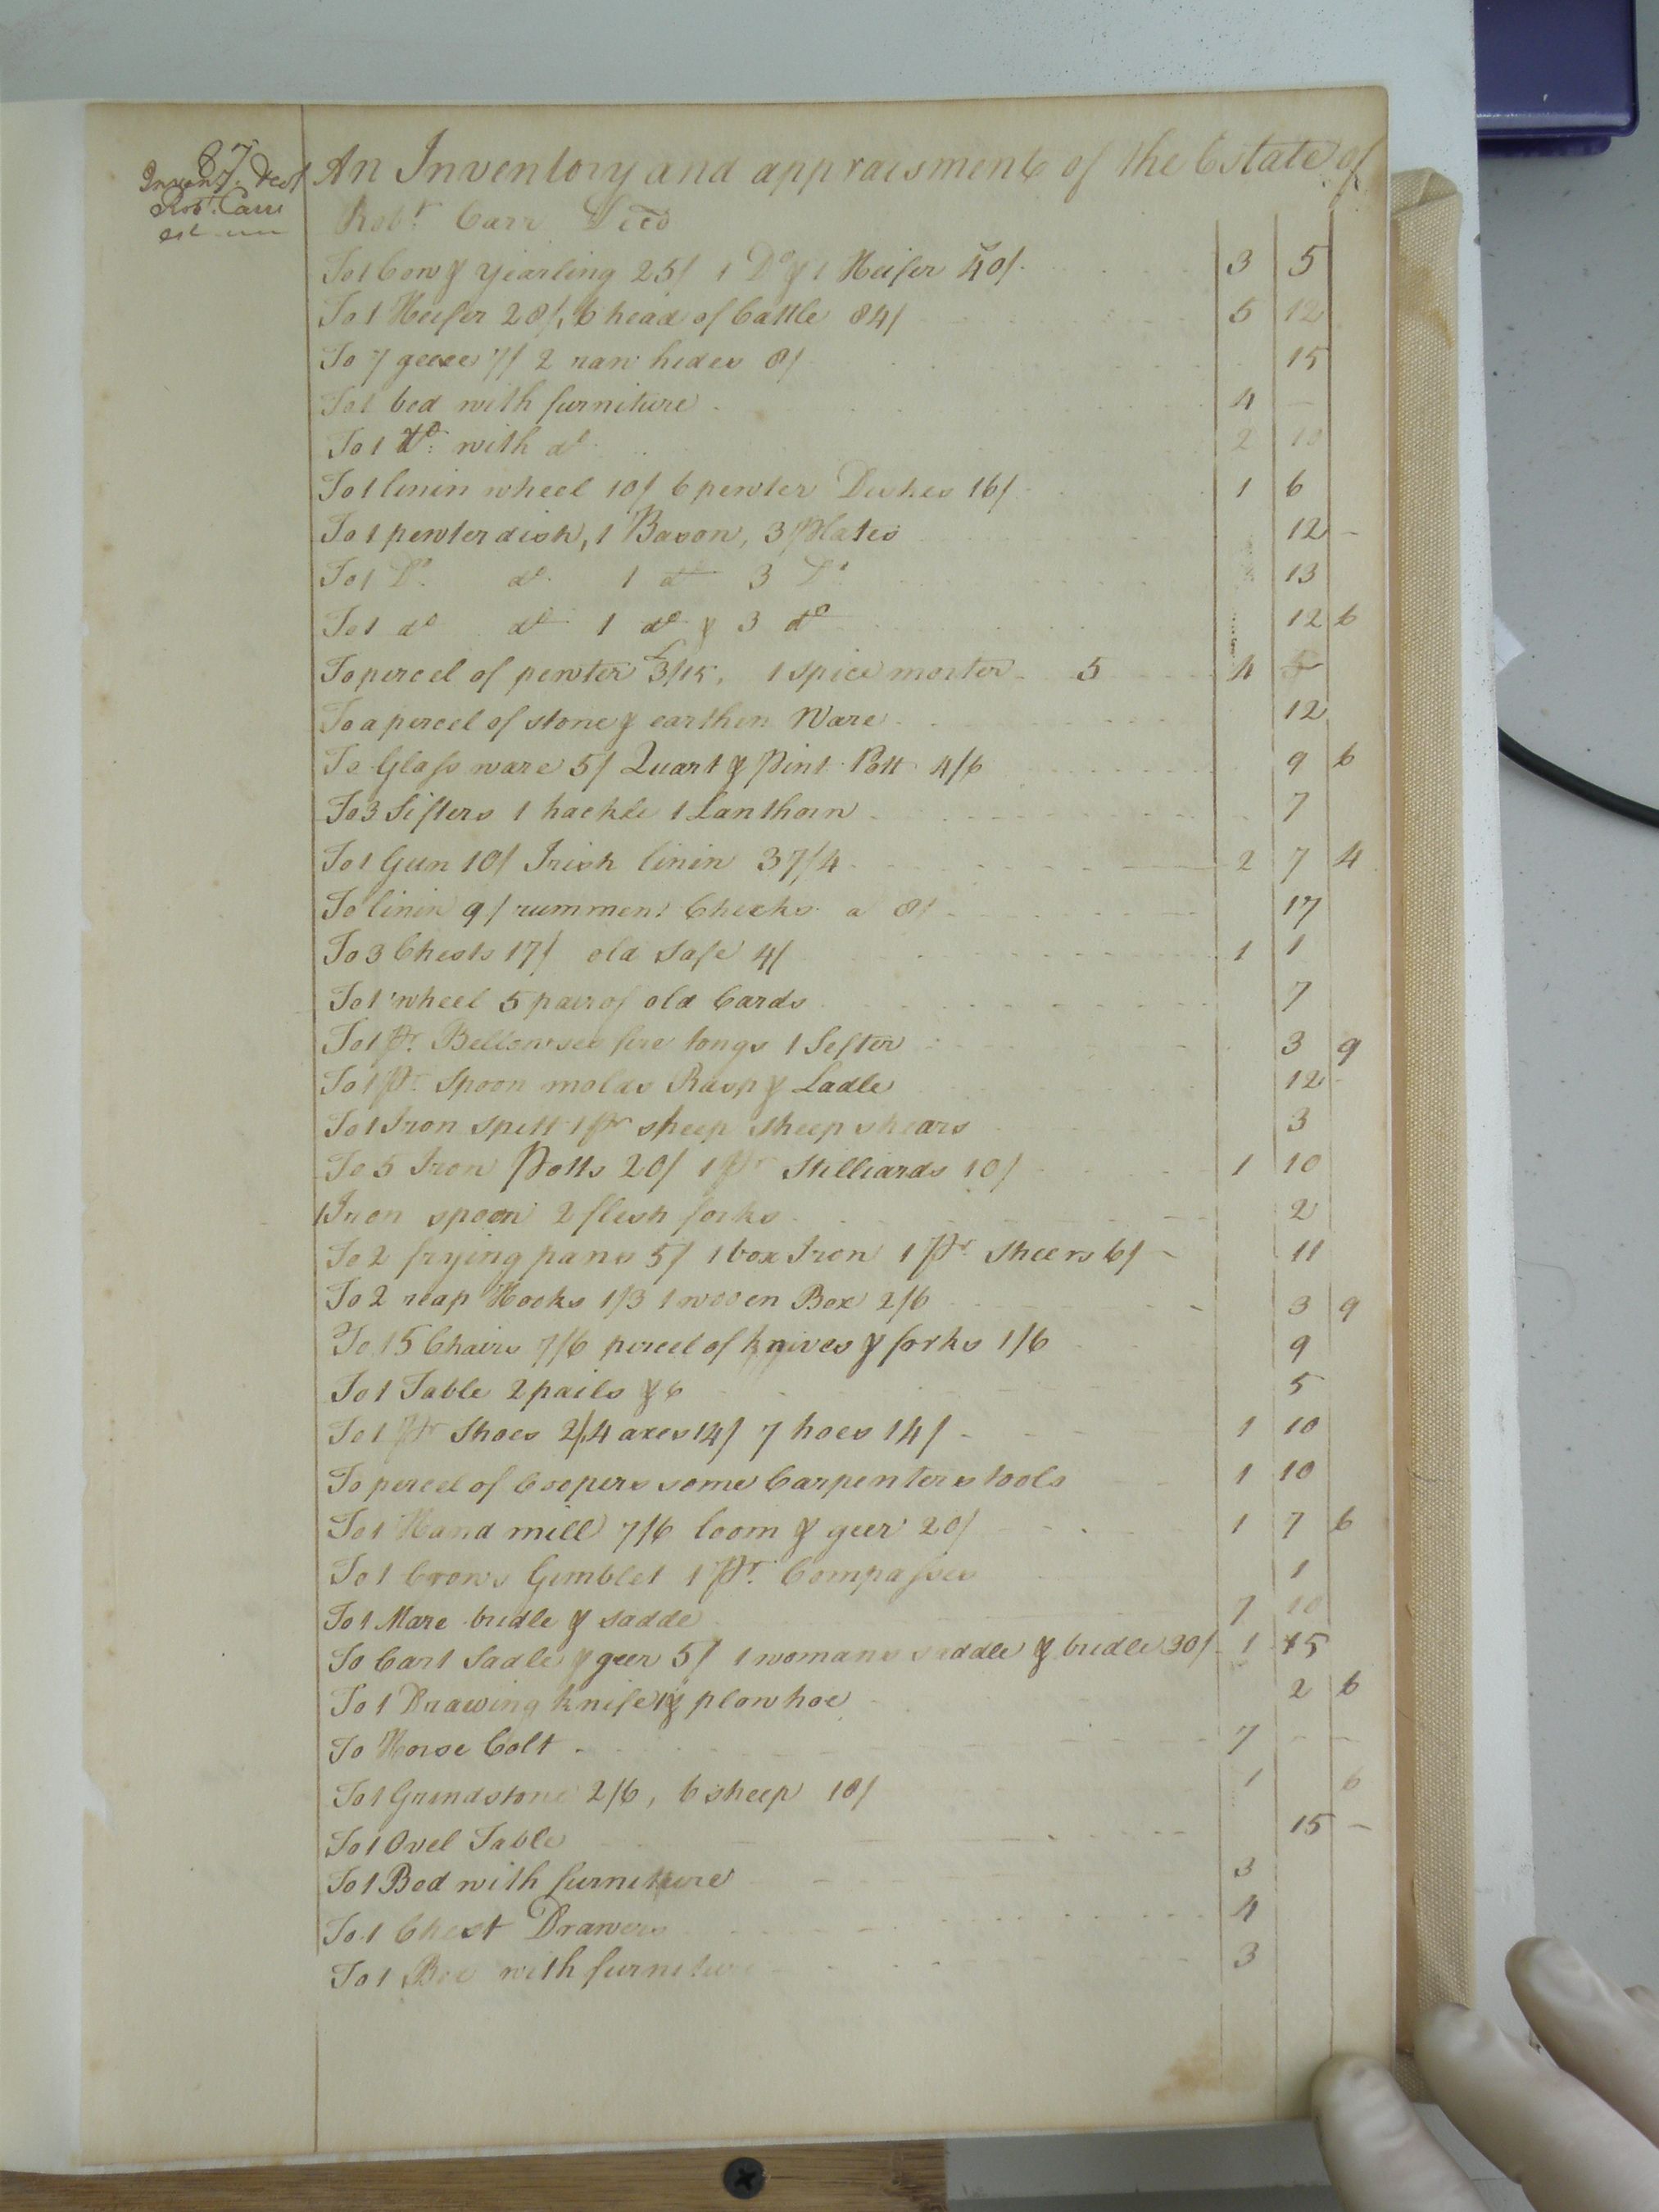 87
Inven.y &c of
Rob.t Carr
An Inventory and appraisment of the Estate of
Rob.t Carr Decd
To 1 Cow & yearling 25/ 1 Do & 1 Heifer 40/. 3 5
To 1 Heifer 28/, 6 head of Cattle 84/ 5 12
To 7 geese 7/ 2 raw hides 8/ 15
To 1 bed with furniture 4 —
To 1 do: with do 2 10
To 1 linin wheel 10/ 6 pewter Dishes 16/ 1 6
To 1 pewter dish, 1 Bason, 3 Plates 12 -
To 1 Do do 1 do 3 Do 13
To 1 do do 1 do & 3 do 12 6
To percel of pewter £3/15, 1 spice morter 5 4 5
To a percel of stone & earthen Ware 12
To Glass ware 5/ Quart & Pint Pott 4/6 9 6
To 3 Sifters 1 hackle 1 Lanthorn 7
To 1 Gun 10/ Irish linin 37/4 2 7 4
To linin 9/ rumment Checks a 8/ 17
To 3 Chests 17/ old Safe 4/ 1 1
To 1 wheel 5 pair of old Cards 7
To 1 pr. Bellowses fire tongs 1 Sefter 3 9
To 1 pr Spoon molds Rasp & Ladle 12 -
To 1 Iron Spitt 1 pr sheep sheep shears 3
To 5 Iron Potts 20/ 1 pr Stilliards 10/ 1 10
1 Iron spoon 2 flesh forks 2
To 2 frying pans 5/ 1 box Iron 1 pr Sheers 6/ - 11
To 2 reap Hooks 1/3 1 wooen Box 2/6 3 9
To 15 Chairs 7/6 percel of knives & forks 1/6 9
To 1 Table 2 pails & 6 5
To 1 pr Shoes 2/ 4 axes 14/ 7 hoes 14/ - 1 10
To percel of Coopers some Carpenters tools 1 10
To 1 Hand mill 7/6 loom & geer 20/ 1 7 6
To 1 Crows Gimblet 1 pr. Compasses 1
To 1 Mare bridle & sadde 7 10
To Cart Sadle & geer 5/ 1 womans saddle & bridle 30/ 1 15
To 1 Drawing knife 1 & plow hoe 2 6
To Horse Colt 7 - —
To 1 Grindstone 2/6, 6 sheep 18/ 1 6
To 1 Ovel Table 15 -
To 1 Bed with furniture 3
To 1 Chest Drawers 4
To 1 Bed with furniture 3